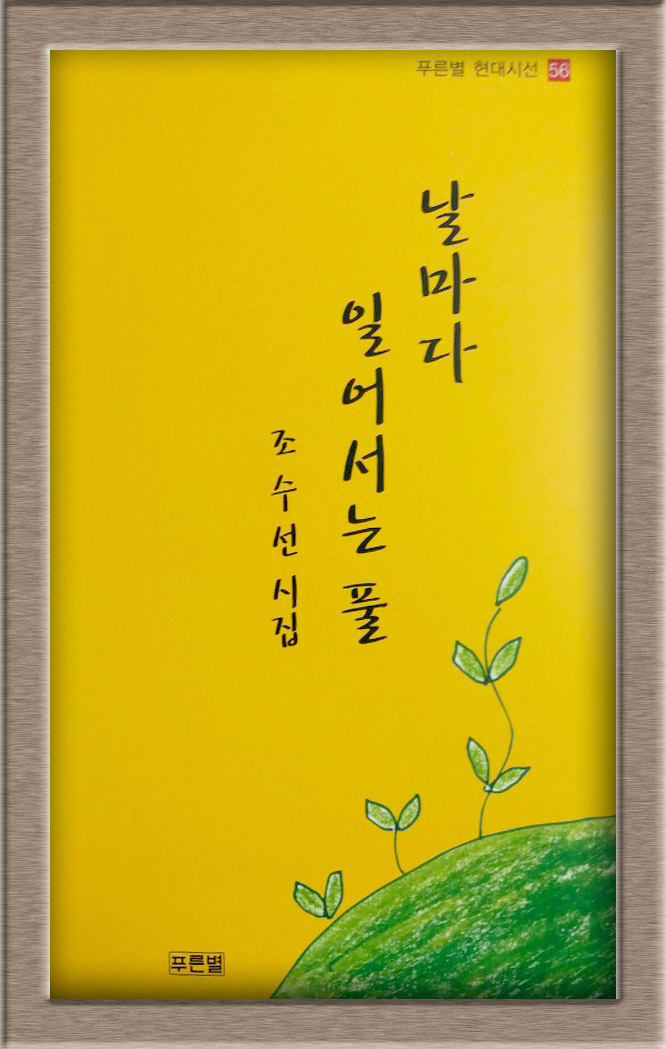 푸른별 현대시선 56
날마다
일어서는 풀
조수선 시집
푸른별